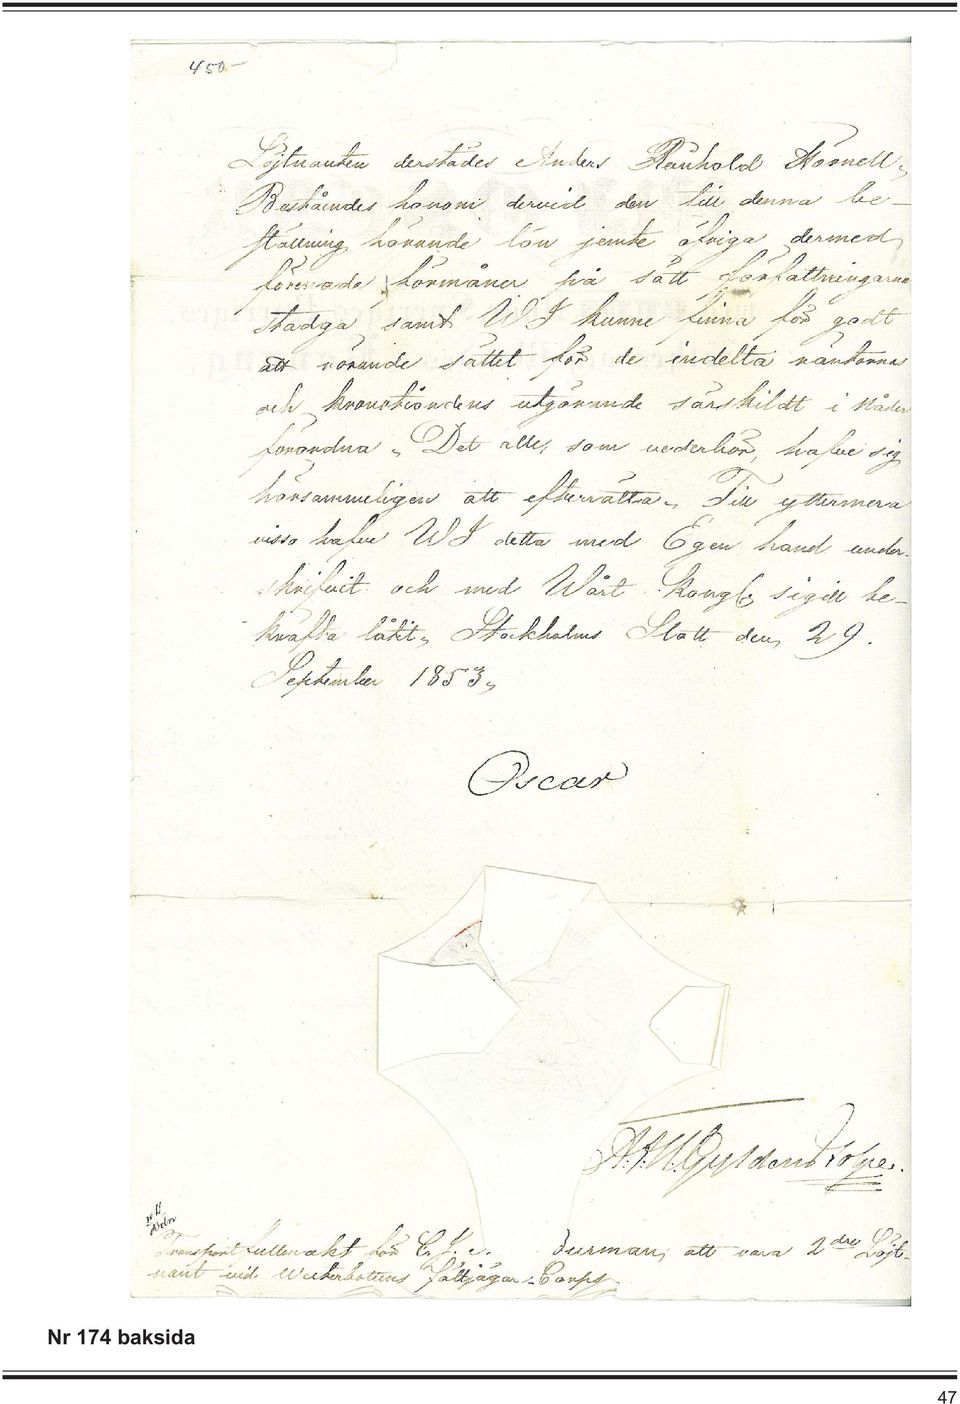 450.-
Löjtnanten derstädes Anders Rainhold Hornell.,
Bestående honom dervid den till denna be-
ställning hörande lön jemte öfriga dermed
förenade förmåner på sätt författningarne
stadga samt WJ kunne finna för godt
att rörande sättet för de indelta räntorna
och krono-tiondens utgörande särskildt i Nåder
förordna., Det alle, som vederbör, hafve sig
hörsammeligen att efterrätta., Till yttermera
visso hafve WJ detta med Egen hand under-
skrifvit och med Wårt Kongl. sigill be-
kräfta låtit., Stockholms Slott den, 29.
September 1853.,
Oscar
Gyldenstolpe.
Transportfullmakt för C. J. v. Burman, att vara 2dre Löjt-
nant vid Westerbottens Fältjägar-Corps.
Nr 174 baksida
47